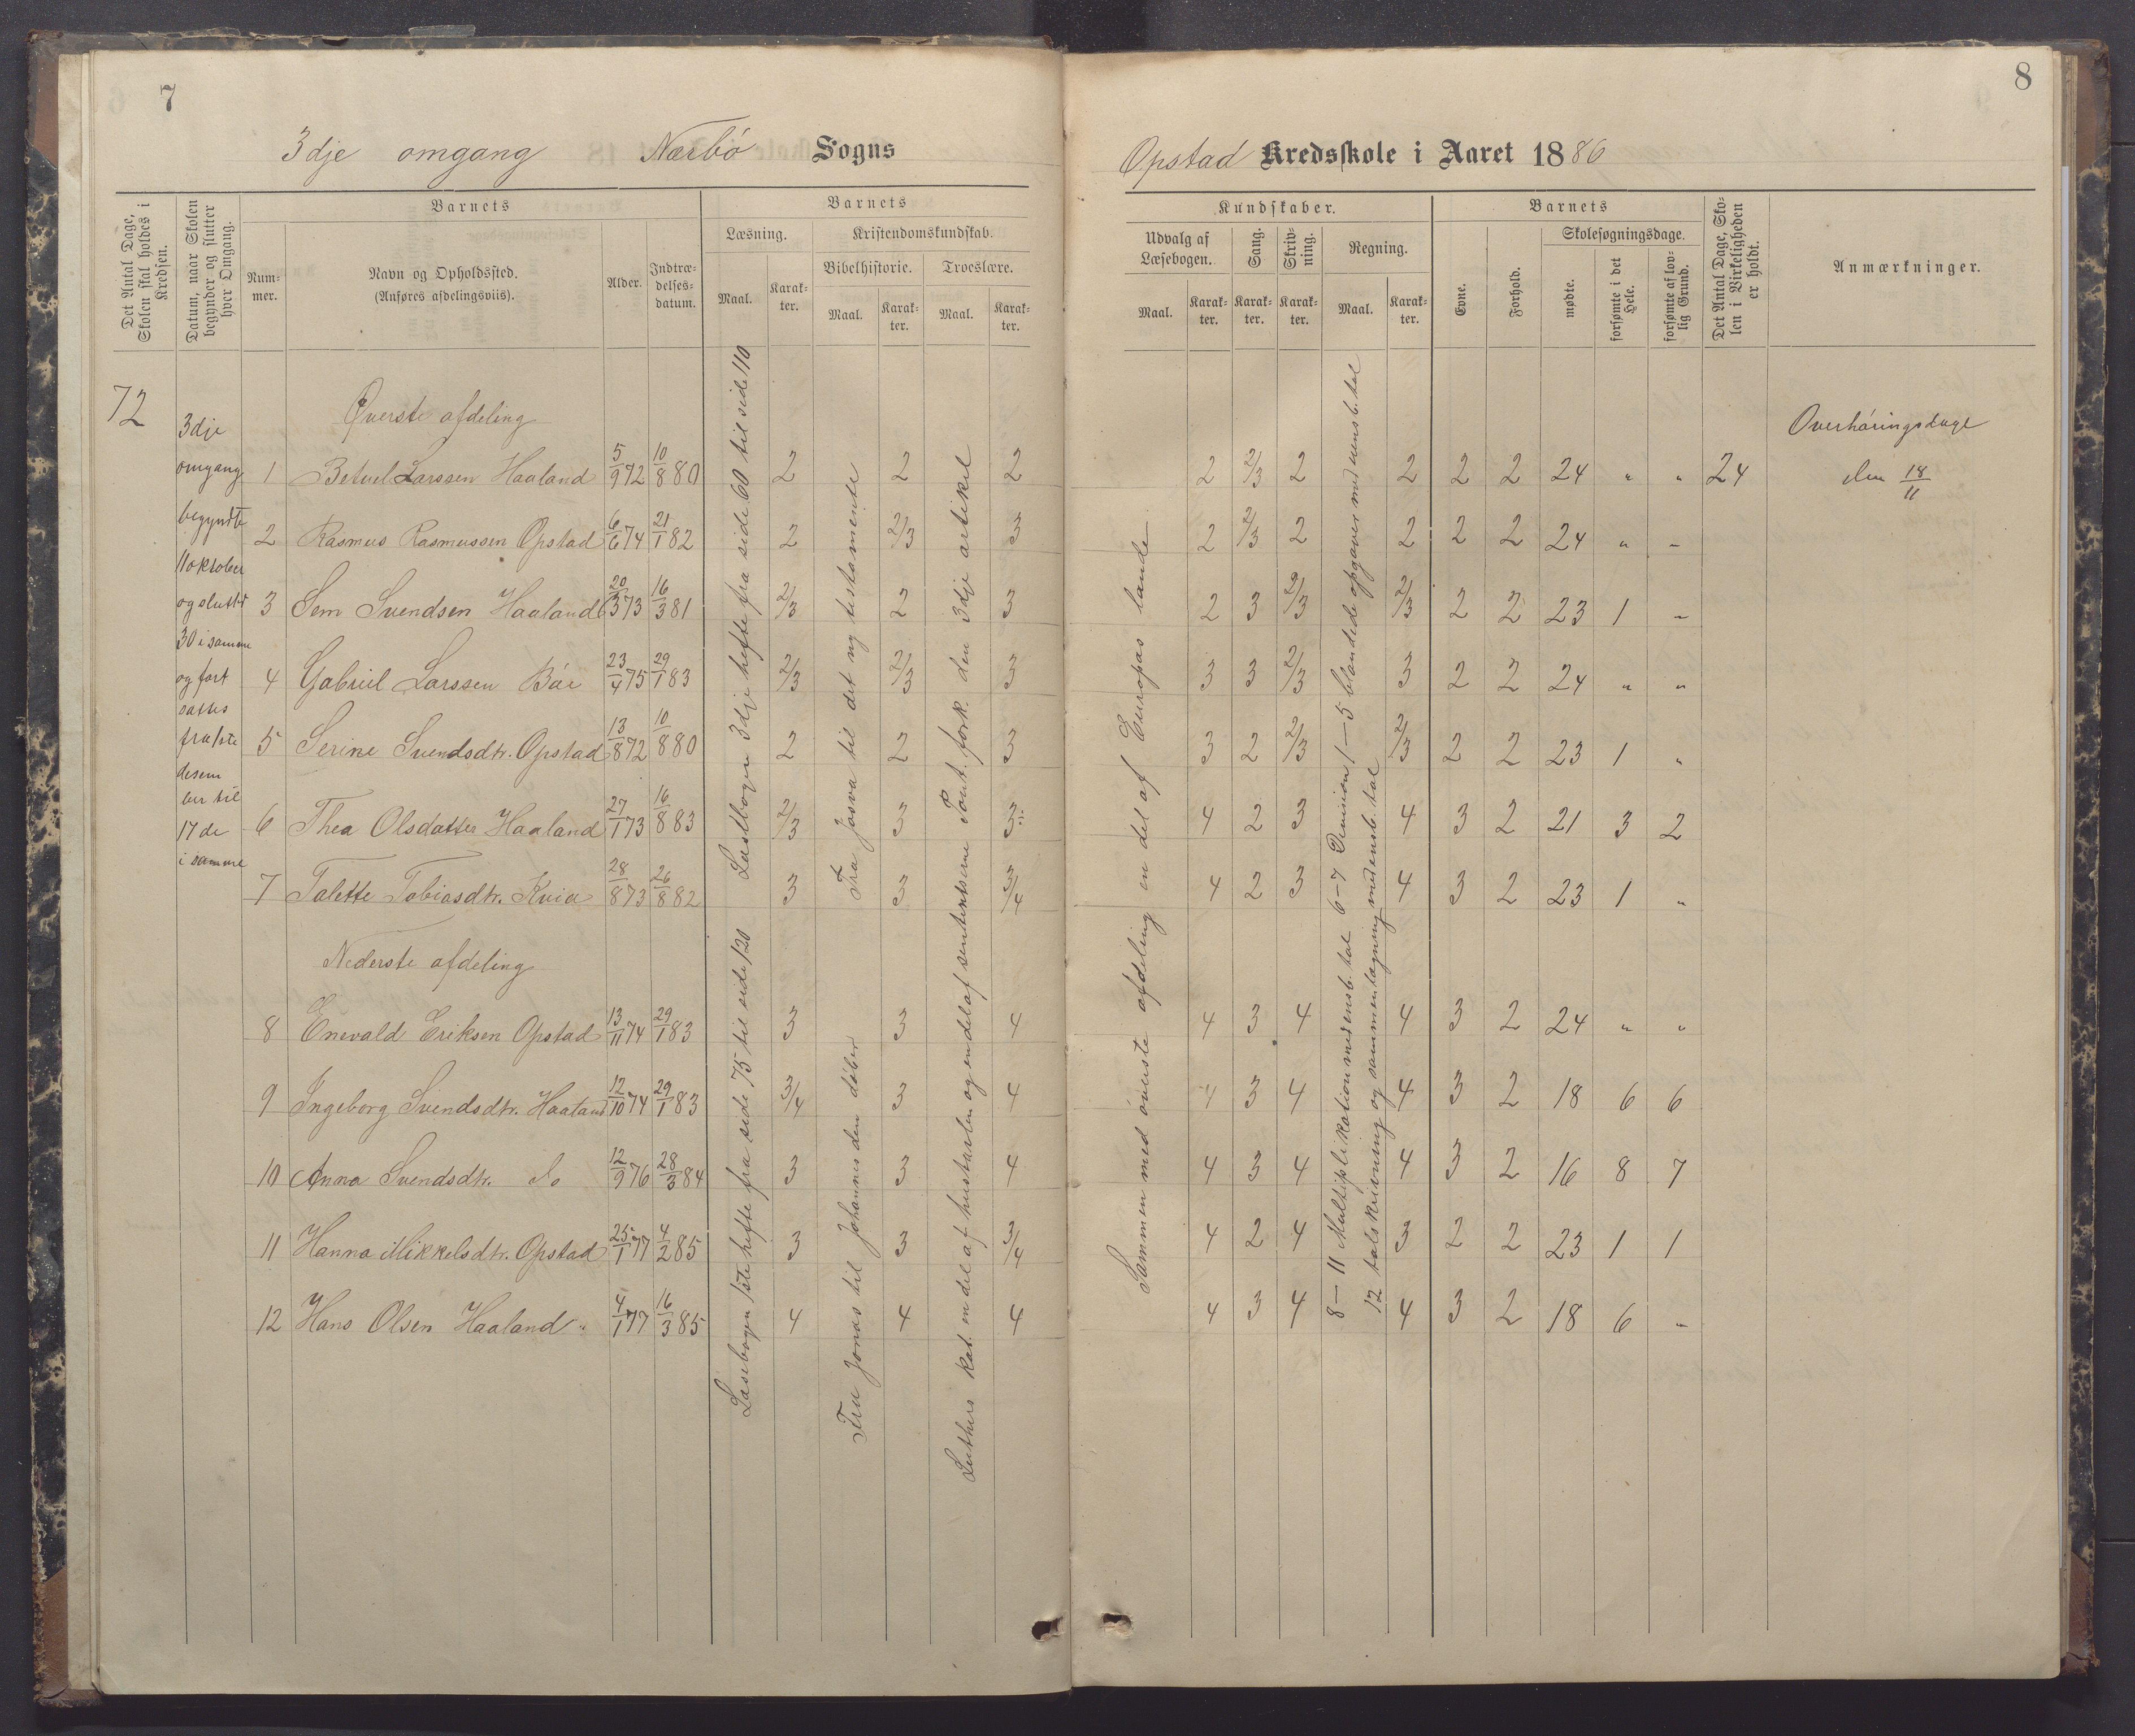 7
3dje omgang Nærbö Sogns
Det Antal Dage, Skolen skal holdes i Kredsen.
Datum, naar Skolen begynder og slutter hver Omgang.
Barnets
Num-mer.
Navn og Opholdssted.
(Anføres afdelingsviis).
Alder.
Indtræ-delses-datum.
Barnets
Læsning.
Kristendomskundskab.
Bibelhistorie.
Troeslære.
Maal.
Karak-ter.
Maal.
Karak-ter.
Maal.
Karak-ter.
72
3dje
omgang
begyndte
11 oktober
og sluttet
30 i samme
og fort
sattes
fra 1ste
desem
ber til
17 de
i samme
Øverste afdeling
1 Betuel Larssen Haaland 5/9 72 10/8 80 2 2 2
2 Rasmus Rasmussen Opstad 6/6 74 21/1 82 2 2/3 3
3 Sem Svendsen Haaland 20/3 73 16/3 81 2/3 2 3
4 Gabriel Larssen Bár 23/4 75 29/1 83 2/3 2/3 3
5 Serine Svendsdtr. Opstad 13/8 72 10/8 80 2 2 3
6 Thea Olsdatter Haaland 27/1 73 16/8 83 2/3 3 3
7 Talette Tobiasdtr. Kvia 28/8 73 26/8 82 3 3 3/4
Nederste afdeling
8 Enevald Eriksen Opstad 13/11 74 29/1 83 3 3 4
9 Ingeborg Svendsdtr. Haaland 12/10 74 29/1 83 3/4 3 4
10 Anna Svendsdtr. do 12/9 76 28/3 84 3 3 4
11 Hanna Mikkelsdtr. Opstad 25/1 77 4/2 85 3 3 3/4
12 Hans Olsen Haaland 4/1 77 16/3 85 4 4 4
Læsebogen 3dje hefte fra side 60 til side 110
Læsebogen 1ste hefte fra side 75 til side 120
Fra Josva til det ny testamente
Fra Jonas til Johannes den döber
Pont. fork. den 3dje artikel
Luthers kat. en del af hustavlen og en del af sententserne
8
Opstad Kredsskole i Aaret 1886
Kundskaber.
Udvalg af Læsebogen.
Sang.
Skriv-ning.
Regning.
Maal.
Karak-ter.
Karak-ter.
Karak-ter.
Maal.
Karak-ter.
Barnets
Evne.
Forhold.
Skolesøgningsdage.
mødte.
forsømte i det Hele.
forsømte af lov-lig Grund.
Det Antal Dage, Sko-len i Virkeligheden er holdt.
Anmærkninger.
Overhöringsdage
den 18/11
2 2/3 2 2 2 2 24 " " 24
2 2/3 2 2 2 2 24 " -
2 3 2/3 2/3 2 2 23 1 -
3 3 2/3 3 2 2 24 " "
3 2 2/3 2/3 2 2 23 1 "
4 2 3 4 3 2 21 3 2
4 2 3 4 3 2 23 1 "
4 3 4 4 3 2 24 " "
4 3 4 4 3 2 18 6 6
4 3 4 4 3 2 16 8 7
4 2 4 3 2 2 23 1 1
4 3 4 4 3 2 18 6 "
en del af Europas lande
Sammen med överste afdeling
1-5 blandede opgaver med uensb. tal
6-7 Division med ensb. tal
8-11 Multiplikation med ensb. tal
12 talskrivning og sammenlægning